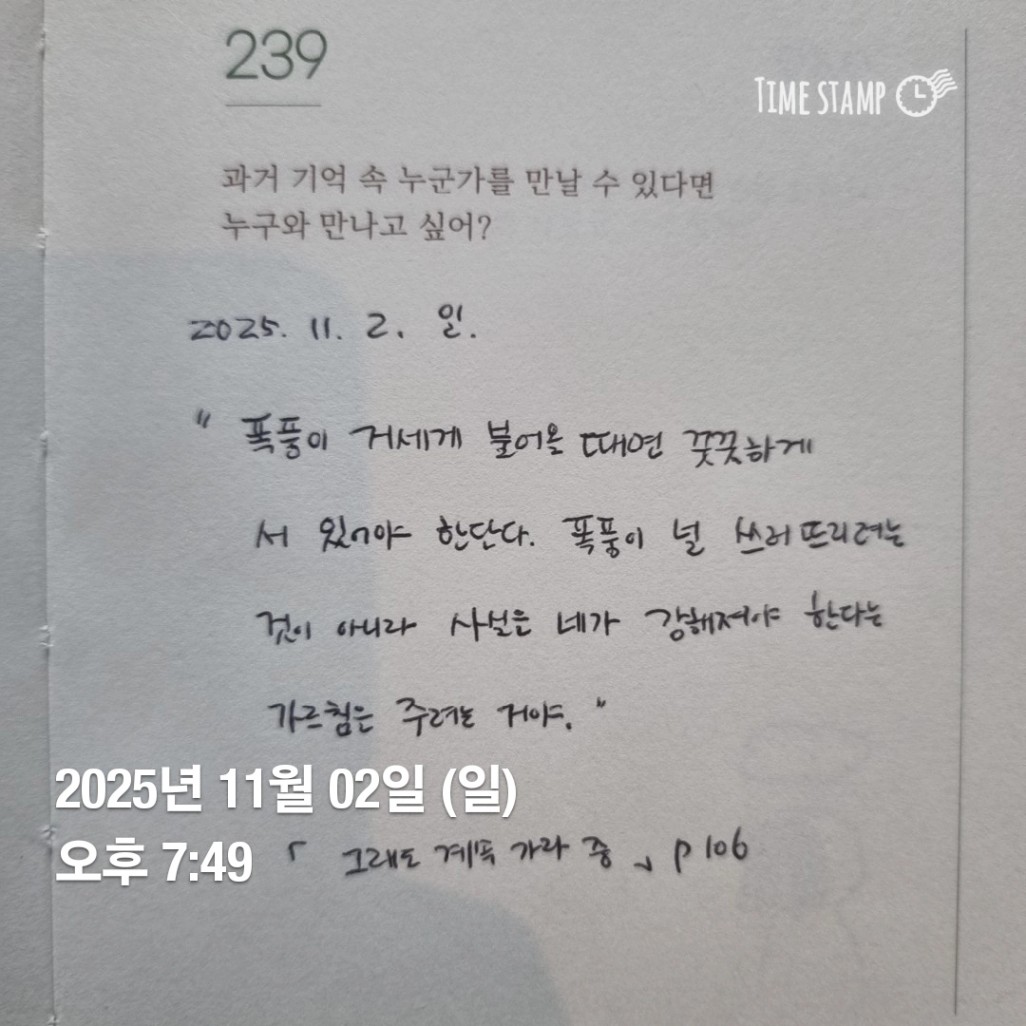 239
TIME STAMP
과거 기억 속 누군가를 만날 수 있다면
누구와 만나고 싶어?
2025. 11. 2. 일.
" 폭풍이 거세게 불어올 때면 꿋꿋하게
서 있어야 한단다. 폭풍이 널 쓰러뜨리려는
것이 아니라 사실은 네가 강해져야 한다는
가르침은 주려는 거야. "
2025년 11월 02일 (일)
오후 7:49
「 그래도 계속 가라 중 」 p 106